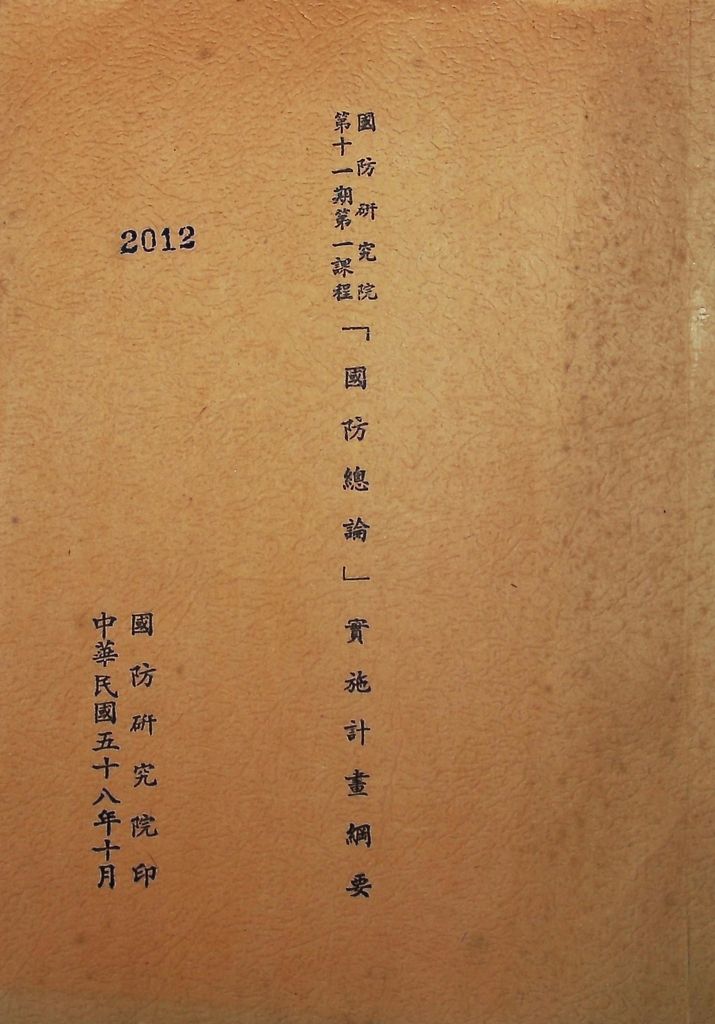 國防研究院
第十一期第一課程
「國防總論」實施計畫綱要
2012
國防研究院印
中華民國五十八年十月